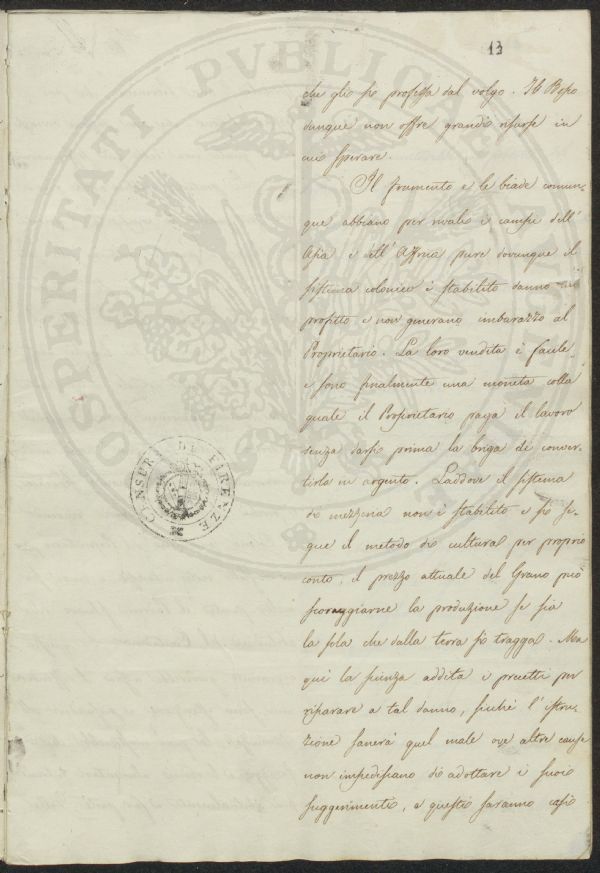 13
che gli si professa dal volgo. Il Bosco
dunque non offre grandi risorse in
cui sperare.
Il frumento e le biade comun-
que abbiano per rivali i campi dell'
Asia e dell'Affrica pure dovunque il
sistema colonico è stabilito danno
profitto e non generano imbarazzo al
Proprietario. La loro vendita è facile
e sono finalmente una moneta colla
quale il Proprietario paga il lavoro
senza darsi prima la briga di conver-
tirla in argento. Laddove il sistema
di mezzeria non è stabilito e si se-
gue il metodo di cultura per proprio
conto, il prezzo attuale del Grano può
scoraggiarne la produzione se sia
la sola che dalla terra si tragga. Ma
qui la scienza addita i precetti per
riparare a tal danno, sicché l'istru-
zione sanerà quel male ove altre cause
non impedissano di adottare i suoi
suggerimenti, e questi saranno casi
PROSPERITATI PVBLICAE
CENSURA DI FIRENZE